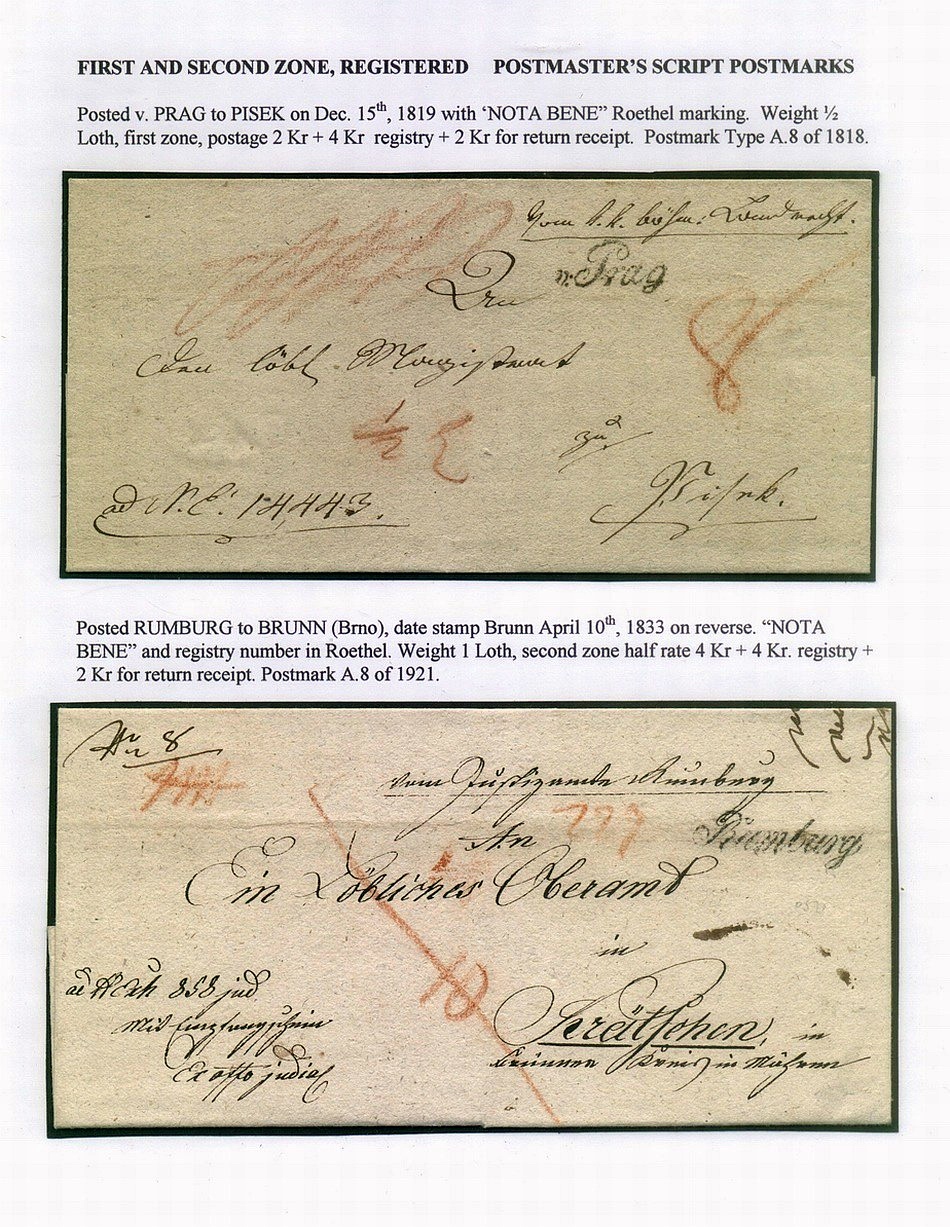 FIRST AND SECOND ZONE, REGISTERED POSTMASTER'S SCRIPT POSTMARKS
Posted v. PRAG to PISEK on Dec. 15th, 1819 with ‘NOTA BENE” Roethel marking. Weight ½
Loth, first zone, postage 2 Kr + 4 Kr registry + 2 Kr for return receipt. Postmark Type A.8 of 1818.
Vom k. k. böhm: Landrecht.
v: Prag
An
8
den löbl Magistrat
½
zu
ad N.E: 14,443.
Pisek.
Posted RUMBURG to BRUNN (Brno), date stamp Brunn April 10th, 1833 on reverse. “NOTA
BENE” and registry number in Roethel. Weight 1 Loth, second zone half rate 4 Kr + 4 Kr. registry +
2 Kr for return receipt. Postmark A.8 of 1921.
8
vom Justizamte Rumburg
An
Rumburg
Ein Löbliches Oberamt
in
10
858 jud
Mit Empfangschein
Ex offo judicl
in
Brünner Kreis in Mähren